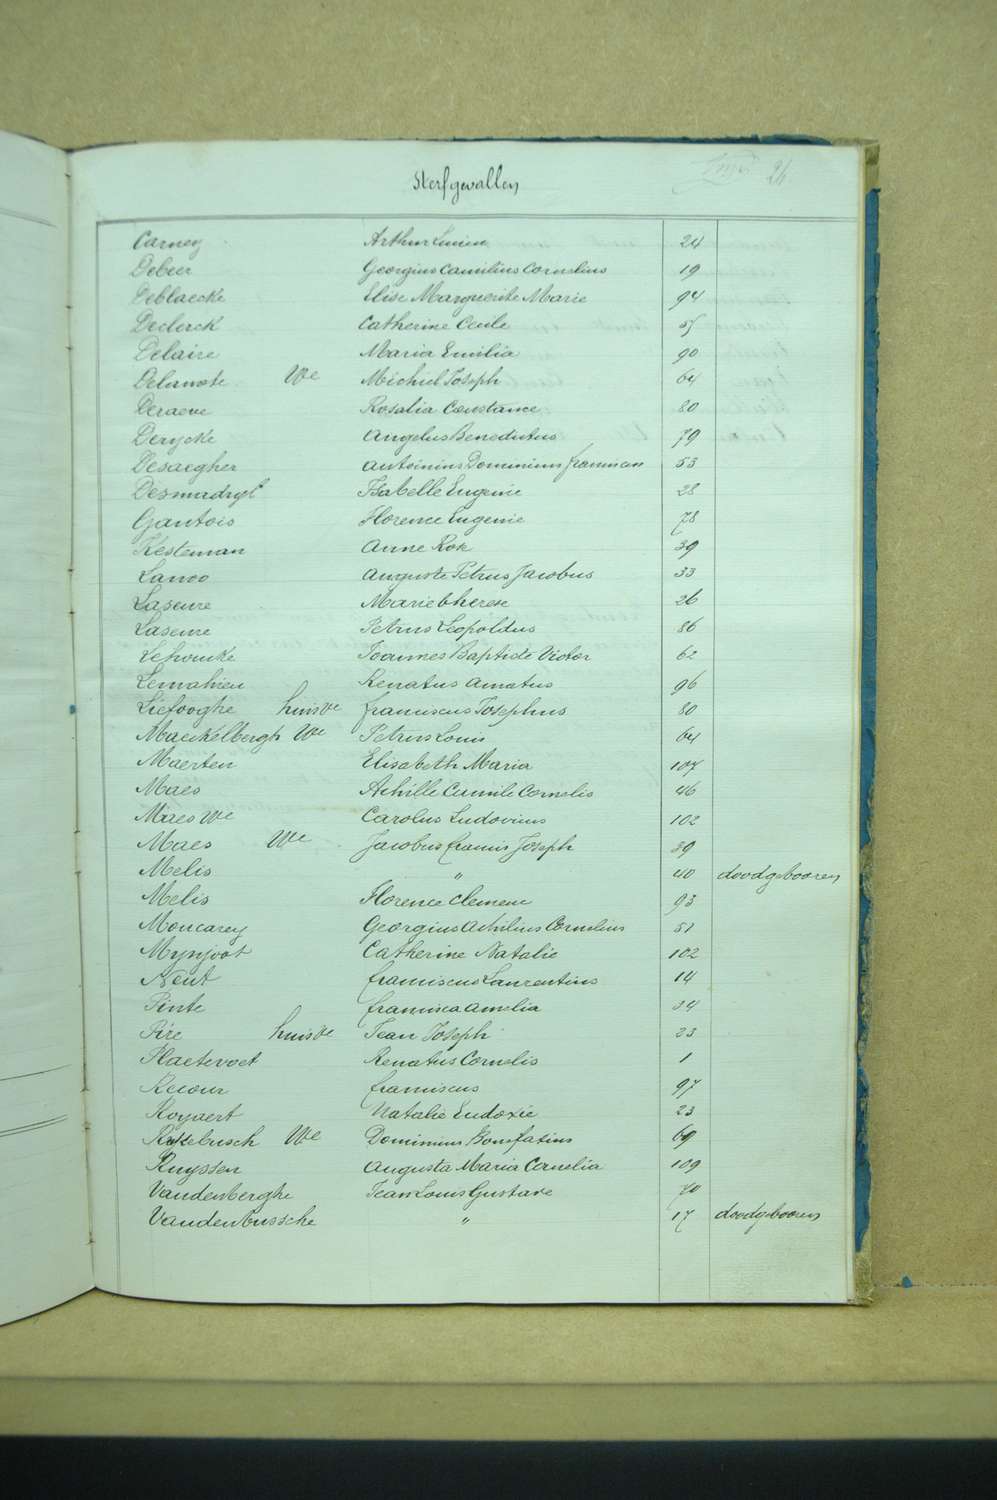 Sterfgevallen 26
Carney Arthur Lucien 24
Debeer Georgius Camilius Cornelius 19
Deblaecke Elise Marguerite Marie 94
Declerck Catherine Cecile 57
Delaire Maria Emilia 90
Delanote We Michiel Joseph 64
Deraeve Rosalia Constance 80
Derycke Angelus Benedictus 79
Desaegher Antoinius Dominicus 53
Desmadryl Isabelle Eugenie 28
Gantois Florence Eugenie 78
Kesteman Anne Rok 39
Lanoo Auguste Petrus Jacobus 33
Laseure Marie therese 26
Laseure Petrus Leopoldus 86
Lehoucke Joannes Baptiste Victor 62
Lemahieu Renatus Amatus 96
Liefooghe huisve franciscus Josephus 80
Maeckelbergh We Petrus Louis 64
Maerten Elisabeth Maria 107
Maes Achille Camile Cornelis 46
Maes We Carolus Ludovicus 102
Maes We Jacobus francis Joseph 39
Melis " 40 doodgebooren
Melis Florence Clemence 93
Moucarey Georgius Achilius Cornelius 51
Mynjoot Catherine Natalie 102
Neut franciscus Laurentius 14
Pinte francisca Amelia 34
Pire huisve Jean Joseph 23
Plaetevoet Renatus Cornelis 1
Recour franciscus 97
Royaert Natalie Eudoxie 23
Ryckebusch We Dominicus Bonifatius 69
Ruyssen Augusta Maria Cornelia 109
Vandenberghe Jean Louis Gustave 70
Vandenbussche " 17 doodgebooren